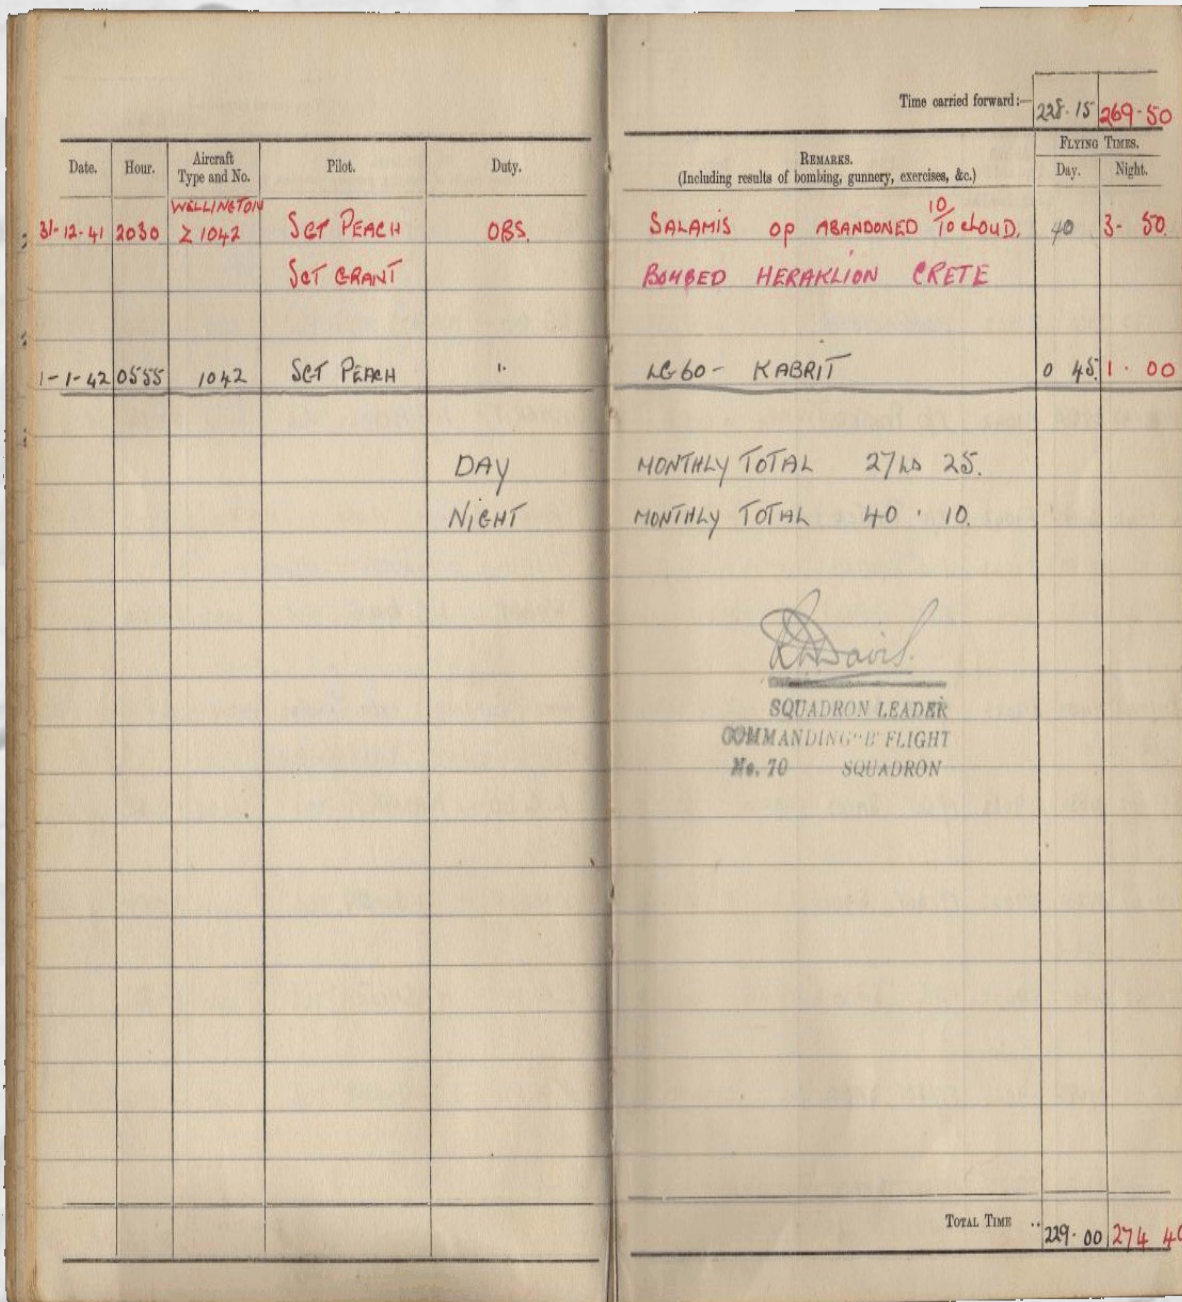 Time carried forward:— 228·15 269·50
Date. Hour. Aircraft Type and No. Pilot. Duty. REMARKS. (Including results of bombing, gunnery, exercises, &c.) FLYING TIMES. Day. Night.
WELLINGTON
31-12-41 2030 Z 1042 SGT PEACH OBS. SALAMIS OP ABANDONED 10/10 CLOUD. 40 3- 50.
SGT GRANT BOMBED HERAKLION CRETE
1-1-42 0555 1042 SGT PEACH " LG60 - KABRIT 0 45. 1· 00
DAY MONTHLY TOTAL 27 25.
NIGHT MONTHLY TOTAL 40 · 10.
Davis.
SQUADRON LEADER
COMMANDING "B" FLIGHT
No. 70 SQUADRON
TOTAL TIME .. 229·00 274 40